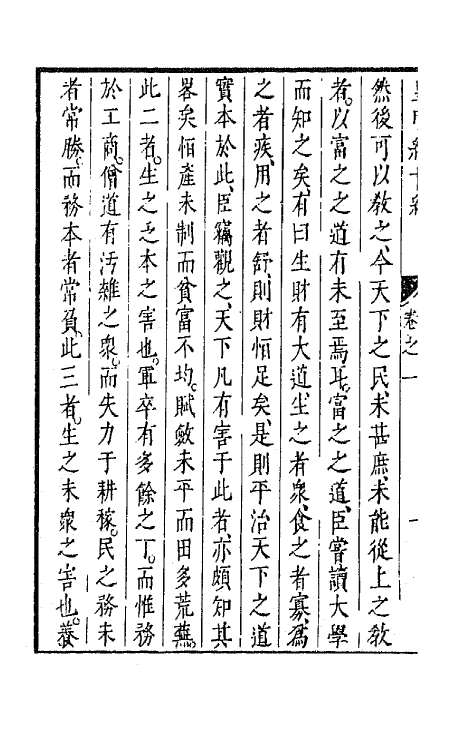 然後可以教之今天下之民未甚庶未能從上之教
者以富之之道有未至焉耳富之之道臣嘗讀大學
而知之矣有曰生財有大道生之者衆食之者寡為
之者疾用之者舒則財恒足矣是則平治天下之道
實本於此臣竊觀之天下凡有害于此者亦頗知其
畧矣恒產未制而貧富不均賦斂未平而田多荒蕪
此二者生之乏本之害也軍卒有多餘之丁而惟務
於工商僧道有汚雜之衆而失力于耕稼民之務末
者常勝而務本者常負此三者生之未衆之害也養
卷之一